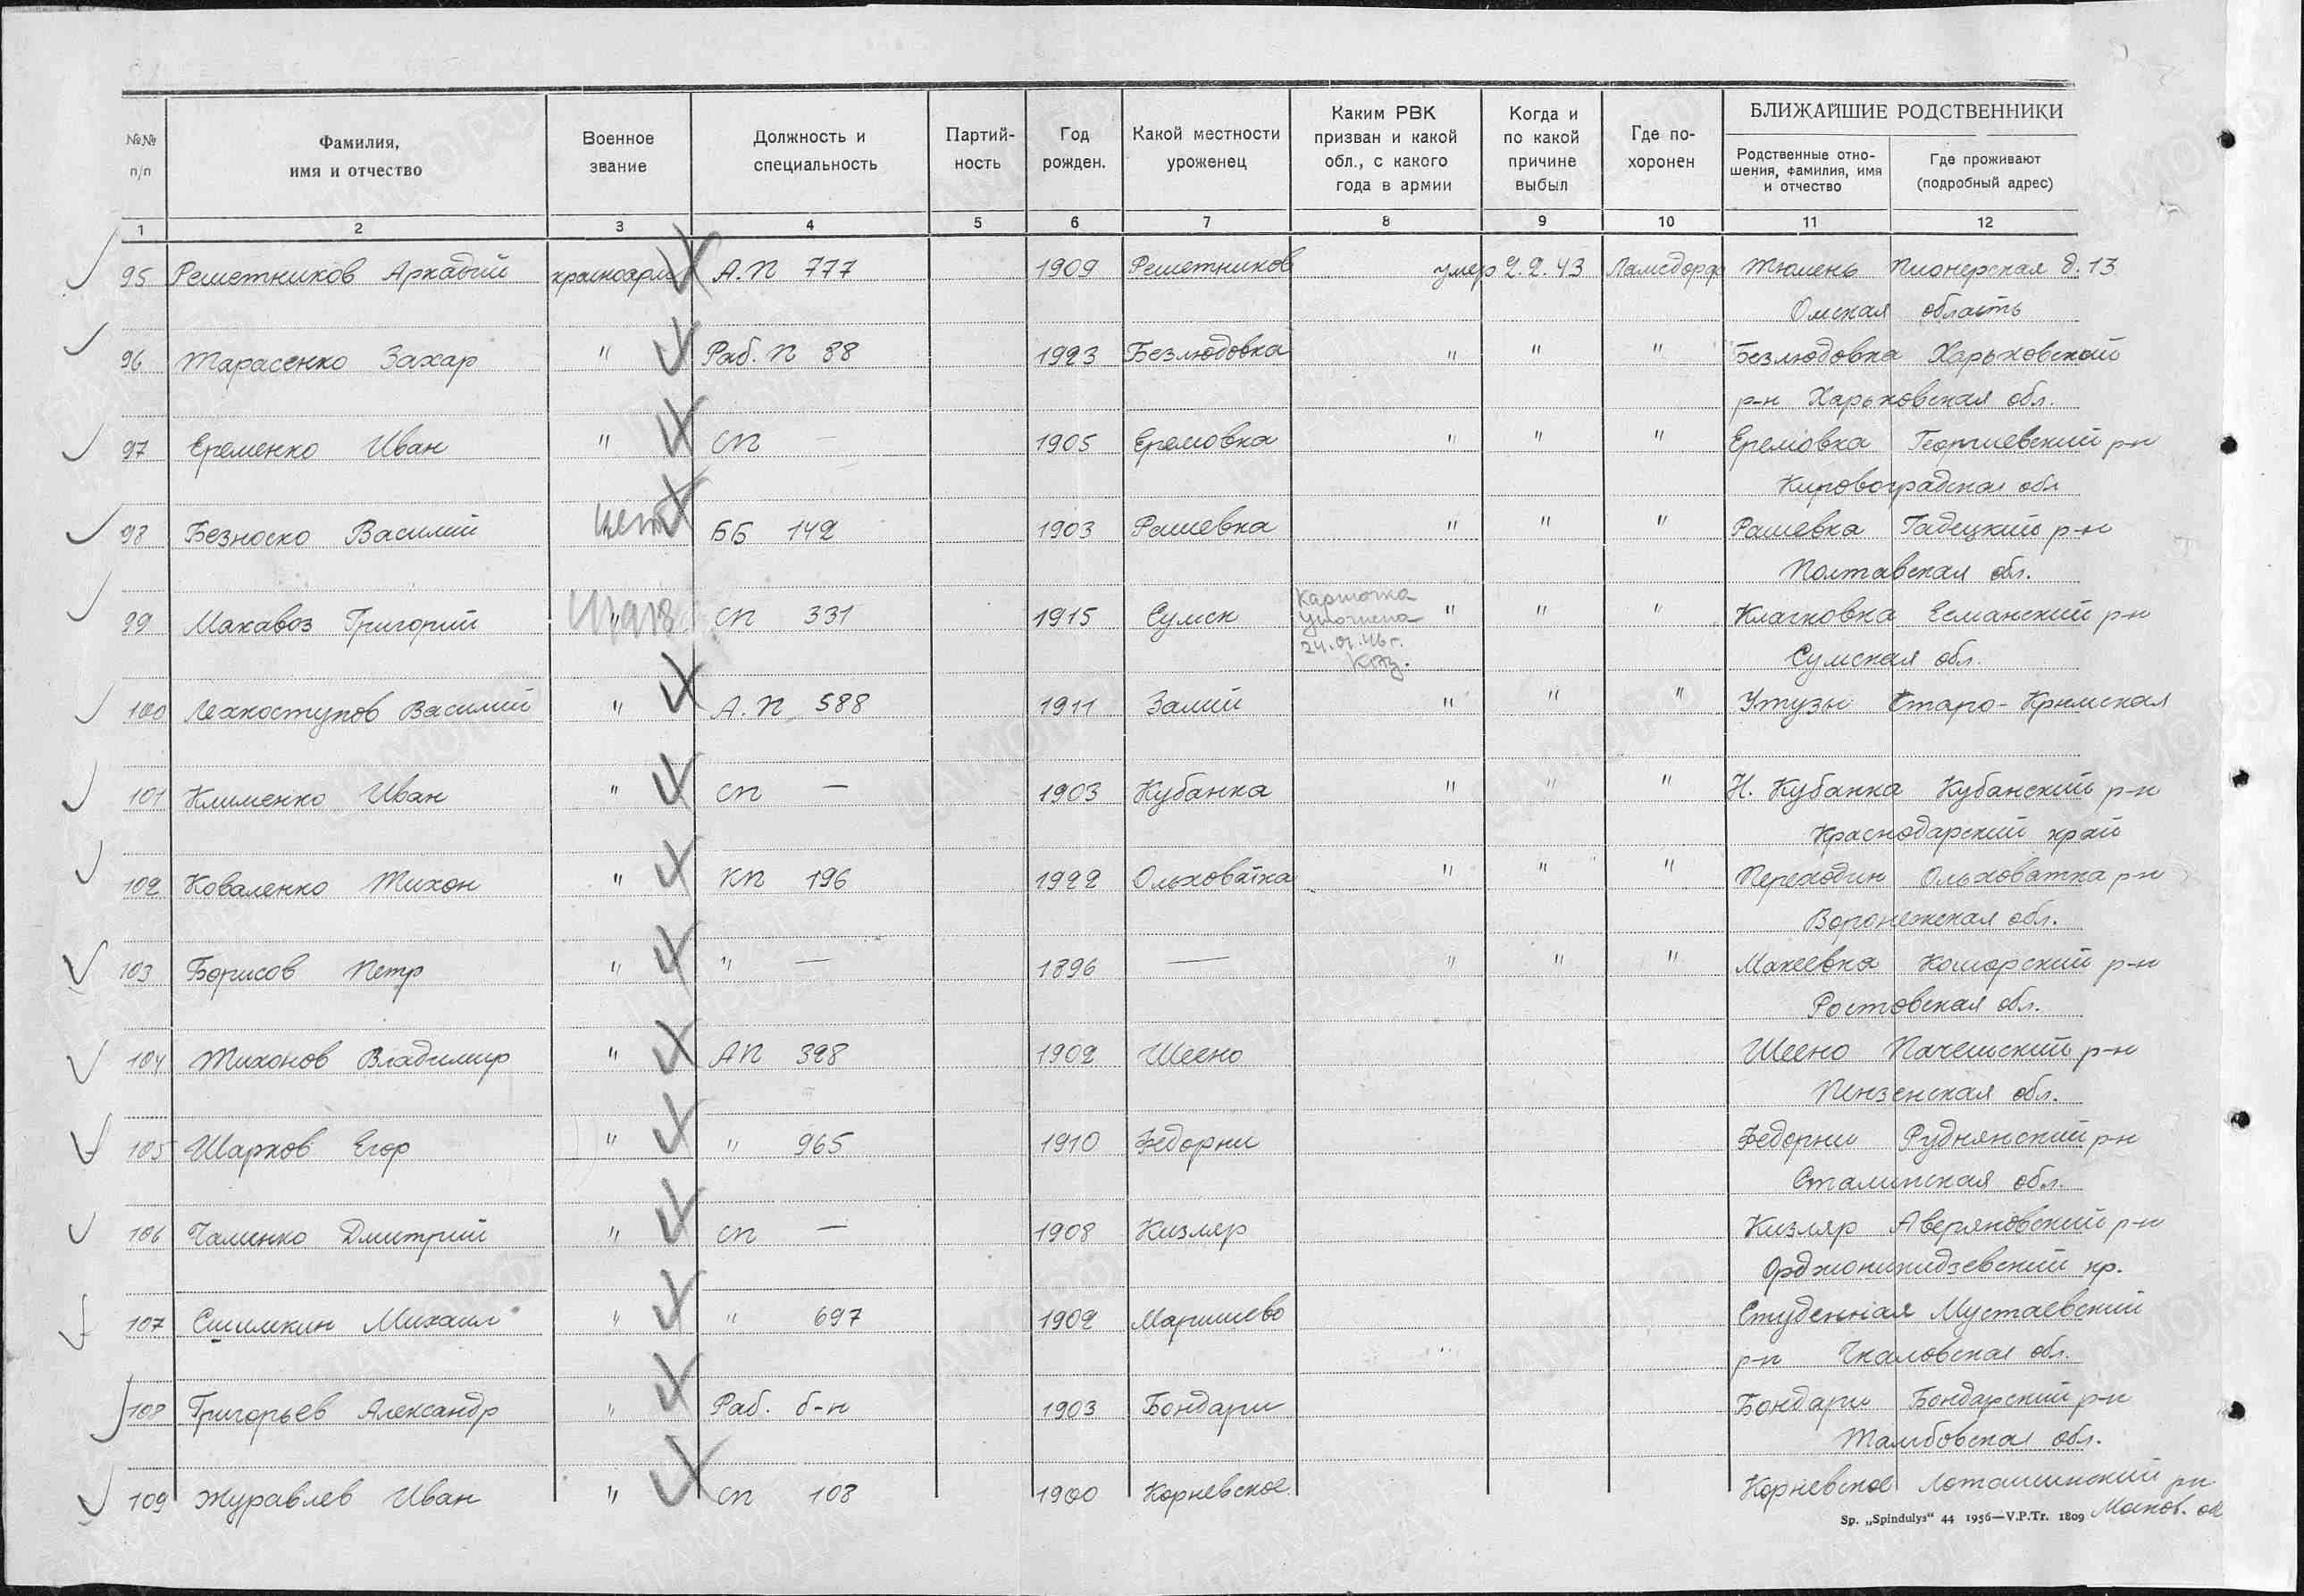 БЛИЖАЙШИЕ РОДСТВЕННИКИ
№№ п/п
Фамилия, имя и отчество
Военное звание
Должность и специальность
Партий-ность
Год рожден.
Какой местности уроженец
Каким РВК призван и какой обл., с какого года в армии
Когда и по какой причине выбыл
Где по-хоронен
Родственные отно-шения, фамилия, имя и отчество
Где проживают (подробный адрес)
1 2 3 4 5 6 7 8 9 10 11 12
95 Решетников Аркадий красноарм А.П 777 1909 Решетников умер 2.2.43 Ламсдорф Тюмень Пионерская д. 13
Омская область
96 Тарасенко Захар " Раб. П 88 1923 Безлюдовка " " " Безлюдовка Харьковский
р-н Харьковская обл.
97 Еременко Иван " СП — 1905 Еремовка " " " Еремовка Георгиевский р-н
Кировоградская обл
98 Безноско Василий ББ 142 1903 Рашевка " " " Рашевка Гадецкий р-н
Полтавская обл.
99 Макавоз Григорий " СП 331 1915 Сумск " " " Клачковка Есманский р-н
Карточка
24.01.46 г.
Сумская обл.
100 Лехкоступов Василий " А.П 588 1911 Залий " " " Утузы Старо-Крымская
101 Клименко Иван " СП — 1903 Кубанка " " " Н. Кубанка Кубанский р-н
Краснодарский край
102 Коваленко Тихон " КП 196 1922 Ольховатка " " " Переходин Ольховатка р-н
Воронежская обл.
103 Борисов Петр " " — 1896 — " " " Макеевка Кошарский р-н
Ростовская обл.
104 Тихонов Владимир " АП 328 1902 Шеено Шеено Пачельский р-н
Пензенская обл.
105 Шарков Егор " " 965 1910 Федорки Федорки Руднянский р-н
Сталинская обл.
106 Чаленко Дмитрий " СП — 1908 Кизляр Кизляр Аверяновский р-н
Орджоникидзевский кр.
107 Сшимкин Михаил " " 697 1902 Маришево Студенная Мустаевский
р-н Чкаловская обл.
108 Григорьев Александр " Раб. б-н 1903 Бондари Бондари Бондарский р-н
Тамбовская обл.
109 Журавлев Иван " СП 108 1900 Корневское Корневское Лоташинский рн
Sp. „Spindulys“ 44 1956—V.P.Tr. 1809 Москов. об